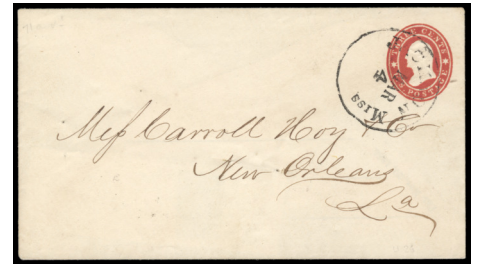 THREE CENTS
U.S. POSTAGE
MAR
4
Miss
Mess Carroll Hoy & Co
New Orleans
La